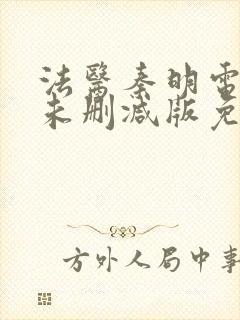 法醫秦明電
未删减版免
方外人局中事